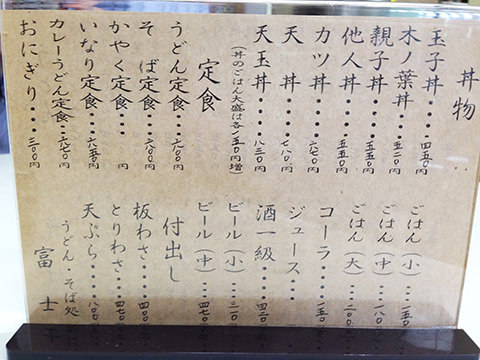 丼物
玉子丼・・・・四五〇円
木ノ葉丼・・・五二〇円
親子丼・・・・五五〇円
他人丼・・・・五五〇円
カツ丼・・・・六八〇円
天丼・・・・七八〇円
天玉丼・・・・八三〇円
(丼のごはん大盛は各)五〇円増
定食
うどん定食・・六〇〇円
そば定食・・・六〇〇円
かやく定食・・・円
いなり定食・・六五〇円
カレーうどん定食・・八七〇円
おにぎり・・・三〇〇円
ごはん(小)・・・一五〇
ごはん(中)・・・一八〇
ごはん(大)・・・二〇〇
コーラ・・・・一五〇
ジュース・・・
酒一級・・・・四二〇
ビール(小)・・・三
ビール(中)・・・四七〇
付出し
板わさ・・・・四〇〇
とりわさ・・・四七〇
天ぷら・・・・八〇〇
うどん・そば処
富士